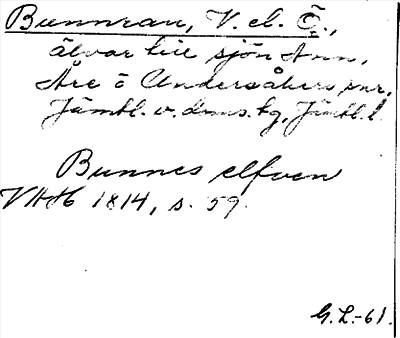 Bunnran, V. el. Ö.,
älvar till sjön Ann,
Åre o Undersåkers snr,
Jämtl. v. doms.hg, Jämtl. l.
Bunnes elfven
VHAH 1814, s. 59.
G.L.-61.